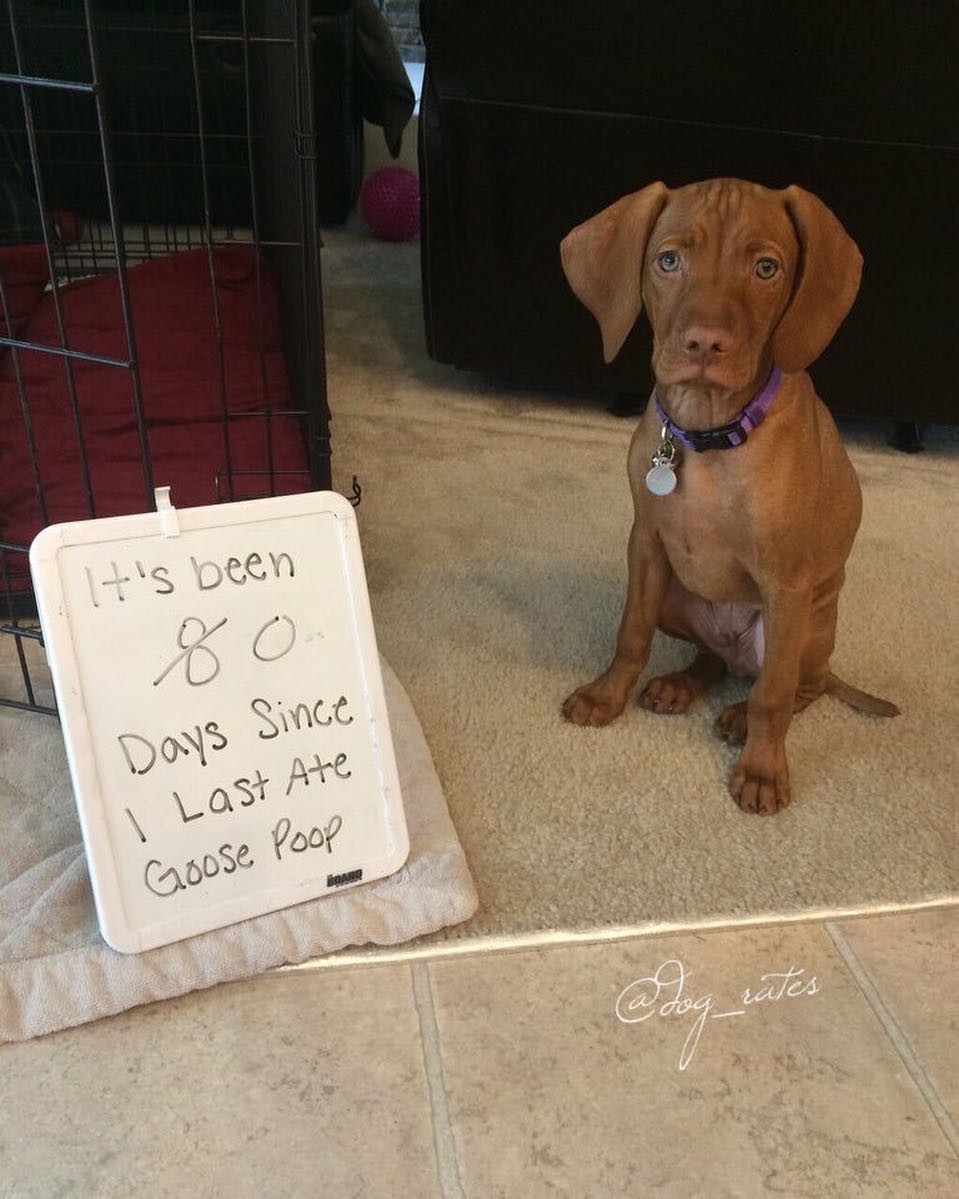 It's been
8 0
Days Since
I Last Ate
Goose Poop
THE BOARD
@dog_rates